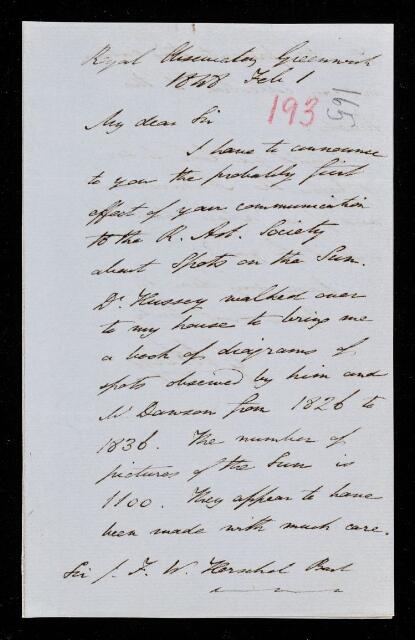 Royal Observatory Greenwich
1848 Feb 1
193
165
My dear Sir
I have to announce
to you the probably first
effect of your communication
to the R. Ast. Society
about Spots on the Sun.
Dr. Hussey walked over
to my house to bring me
a book of diagrams of
spots observed by him and
Mr Dawson from 1826 to
1836. The number of
pictures of the Sun is
1100. They appear to have
been made with much care.
Sir J. F. W. Herschel Bart